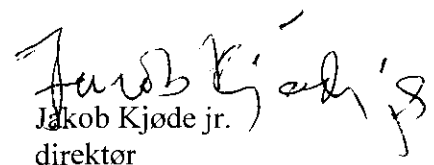 Jakob Kjøde jr
Jakob Kjøde jr.
direktør